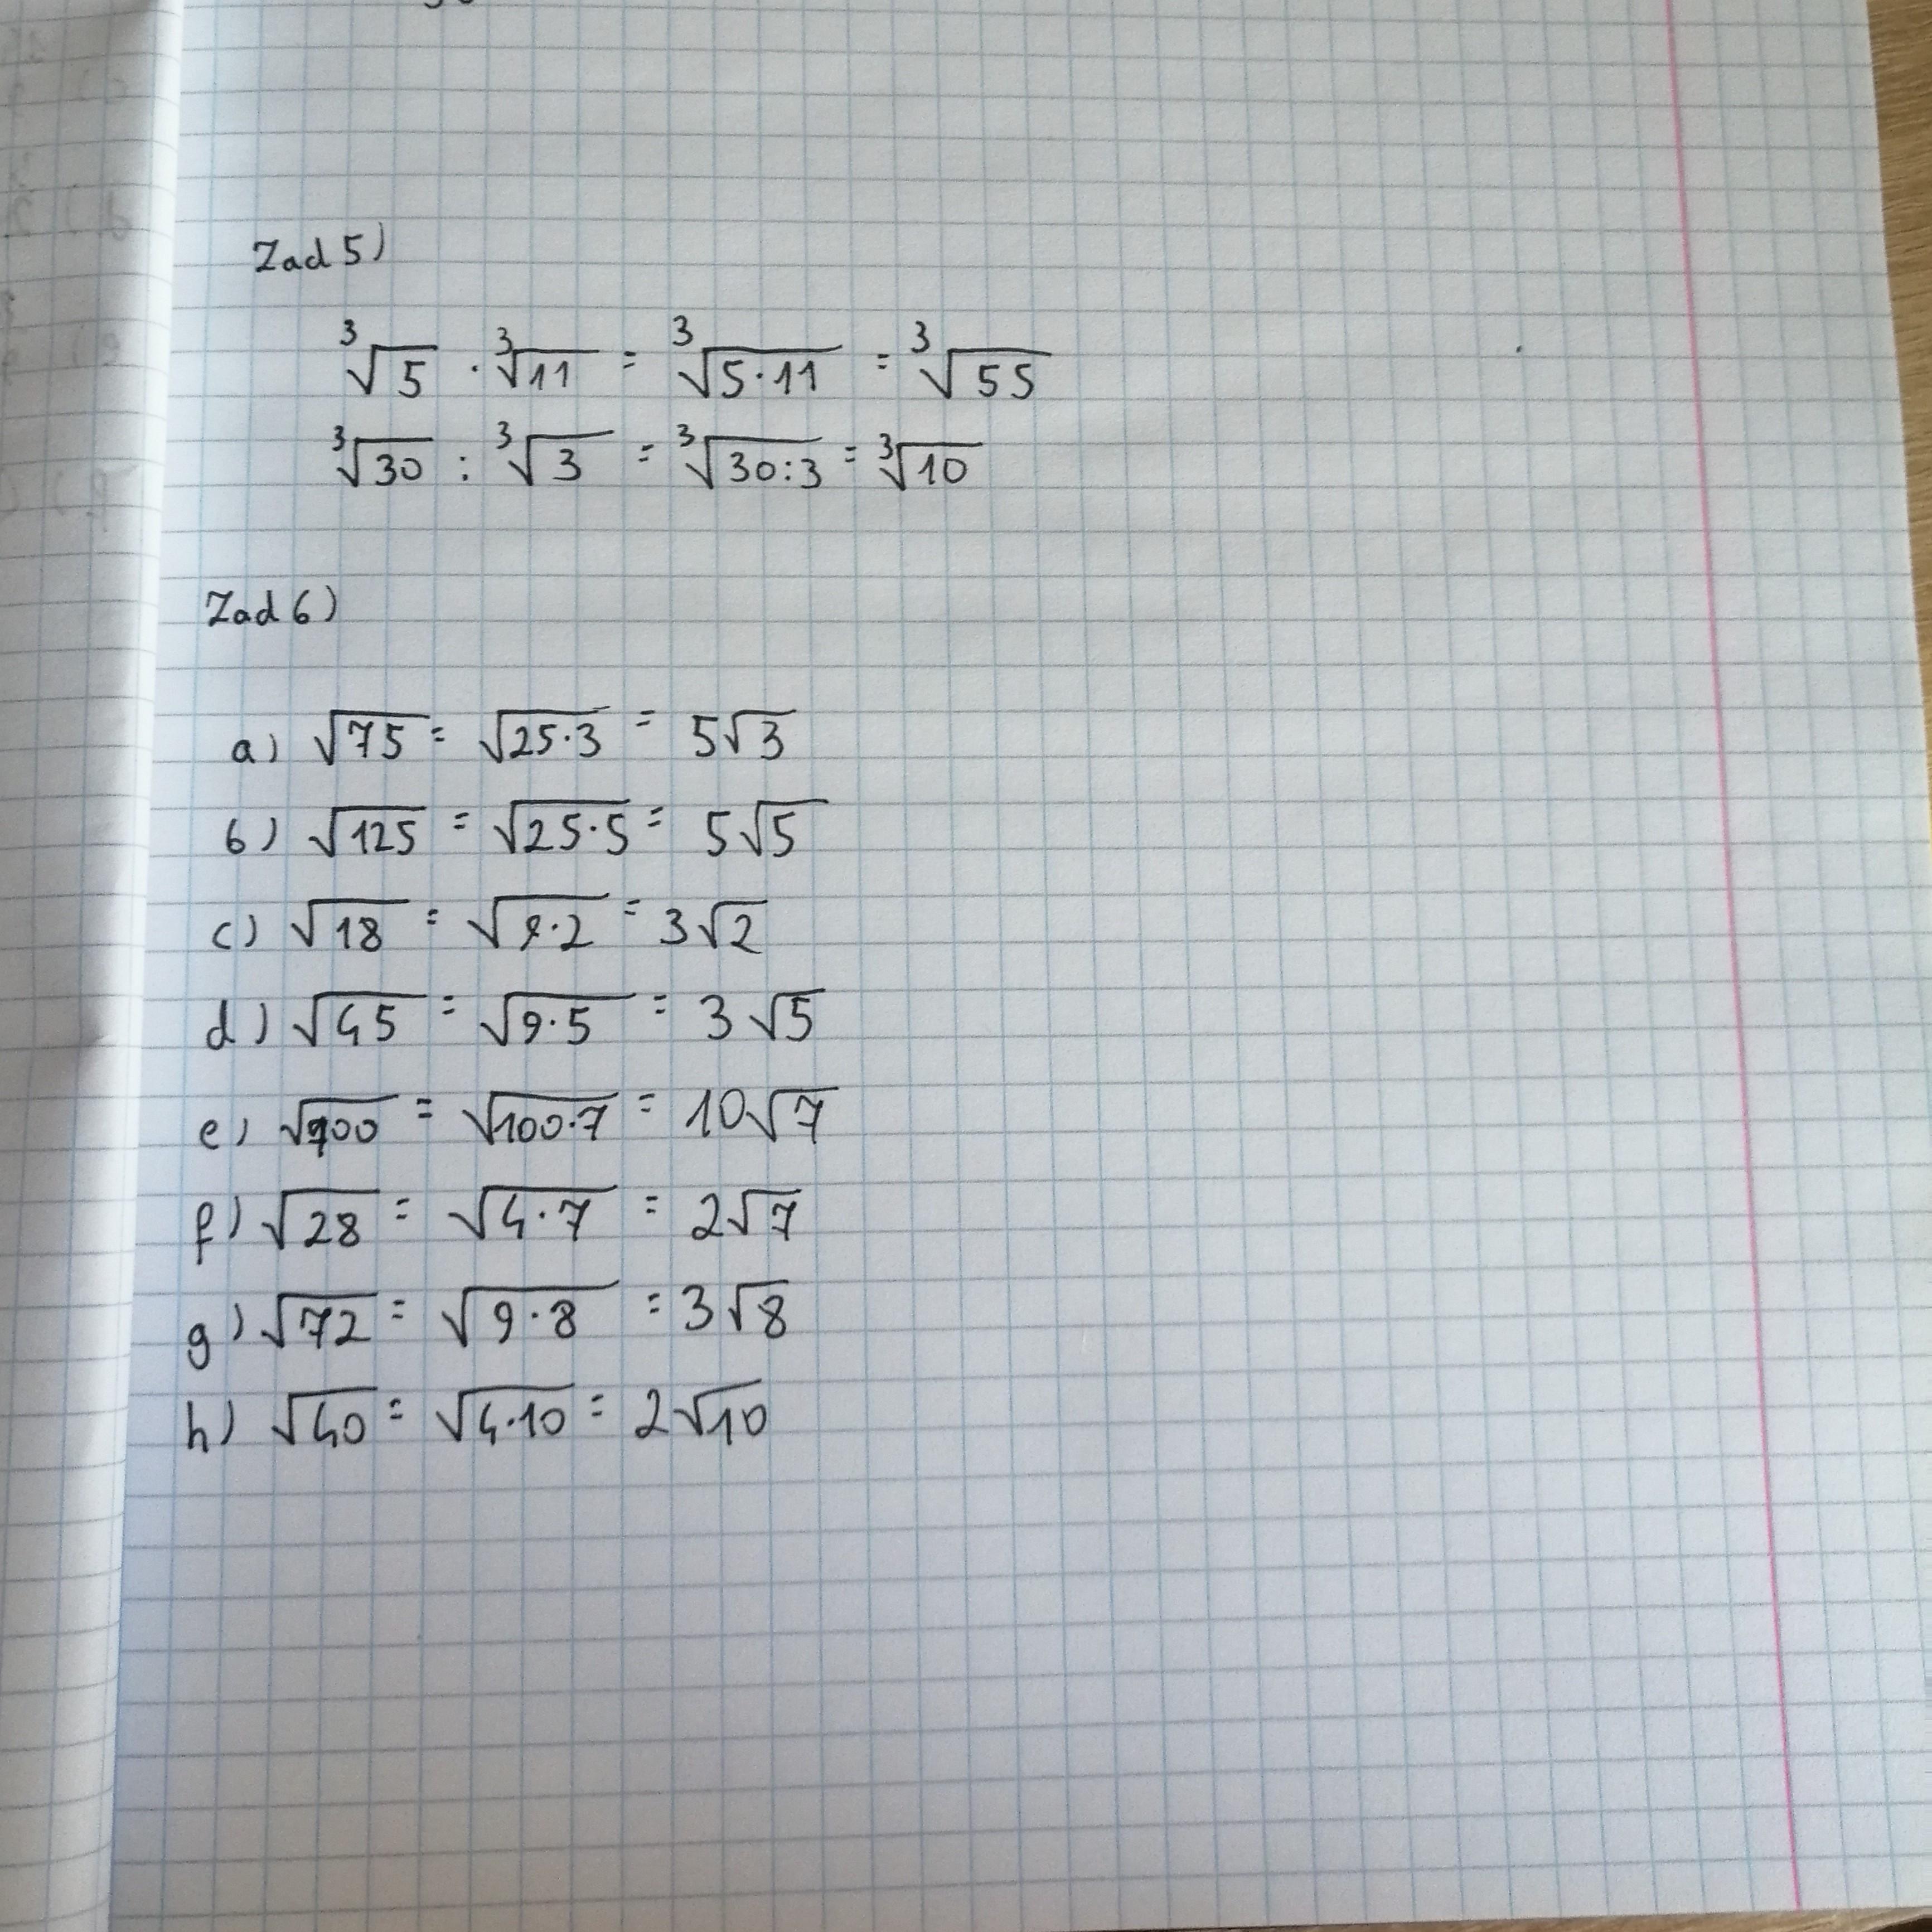 Zad 5)
∛5 · ∛11 = ∛5·11 = ∛55
∛30 : ∛3 = ∛30:3 = ∛10
Zad 6)
a) √75 = √25·3 = 5√3
b) √125 = √25·5 = 5√5
c) √18 = √9·2 = 3√2
d) √45 = √9·5 = 3√5
e) √700 = √100·7 = 10√7
f) √28 = √4·7 = 2√7
g) √72 = √9·8 = 3√8
h) √40 = √4·10 = 2√10